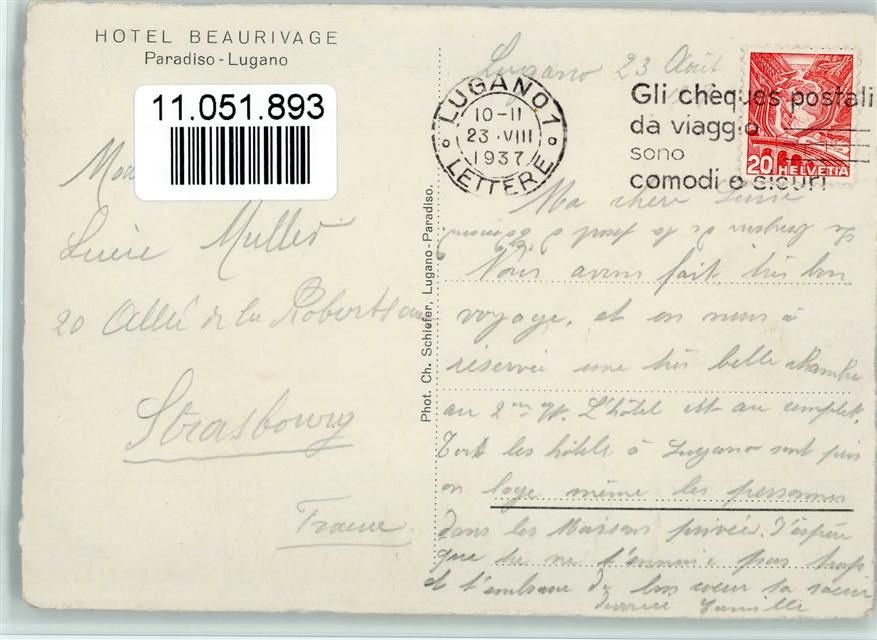 HOTEL BEAURIVAGE
Paradiso - Lugano
11.051.893
Lucie Muller
20 Allée de la Robertsau
Strasbourg
France
Phot. Ch. Schiefer, Lugano-Paradiso.
Lugano 23 Août
LUGANO 1
10-11
23.VIII
1937
LETTERE
Gli chèques postali
da viaggio
sono
comodi e sicuri
20 HELVETIA
Ma chère Lucie
Nous avons fait très bon
voyage, et on nous a
réservée une très belle chambre
au 2me . L'hôtel est au complet.
Tout les hôtels à Lugano sont pris
on loge même les personnes
dans les Maisons privée. J'espère
que tu ne t'ennuie pas trop
et t'embrasse de bon coeur ta soeur
Camille